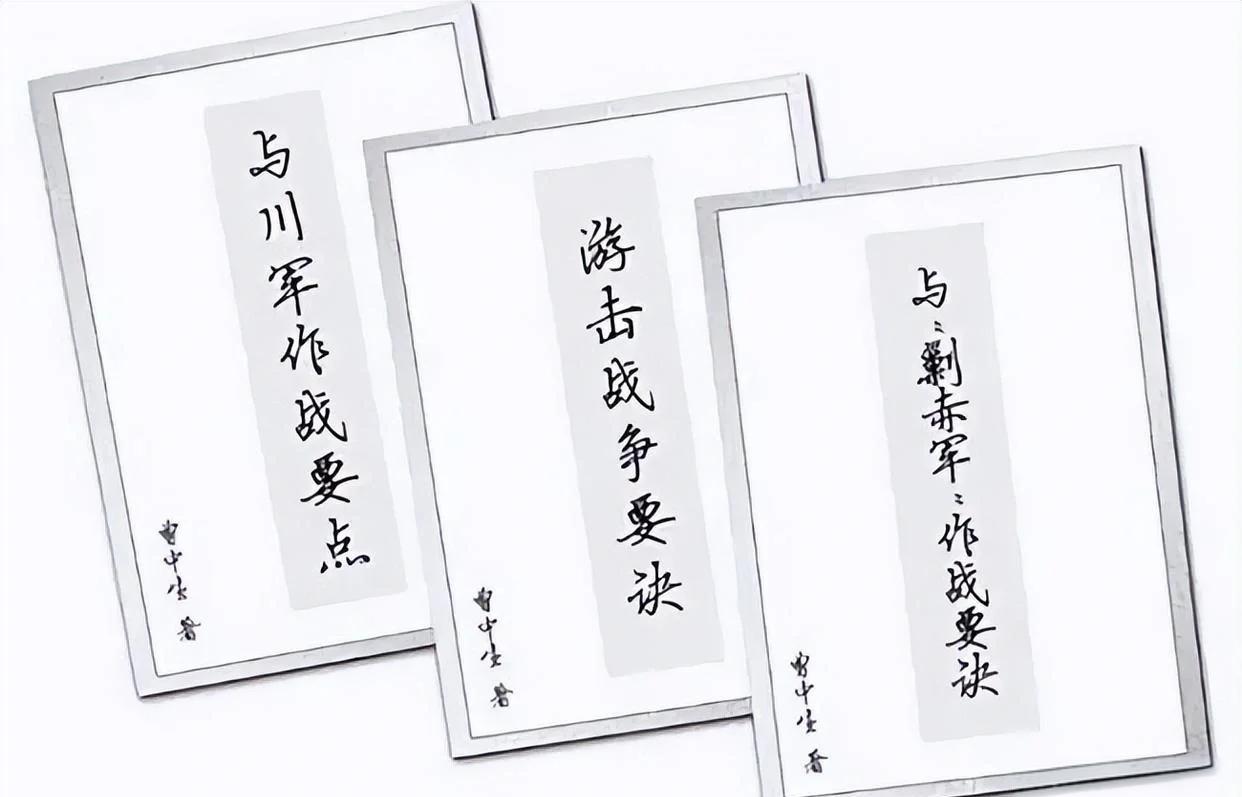 与川军作战要点
曾中生 著
游击战争要诀
曾中生 著
与“剿赤军”作战要诀
曾中生 著